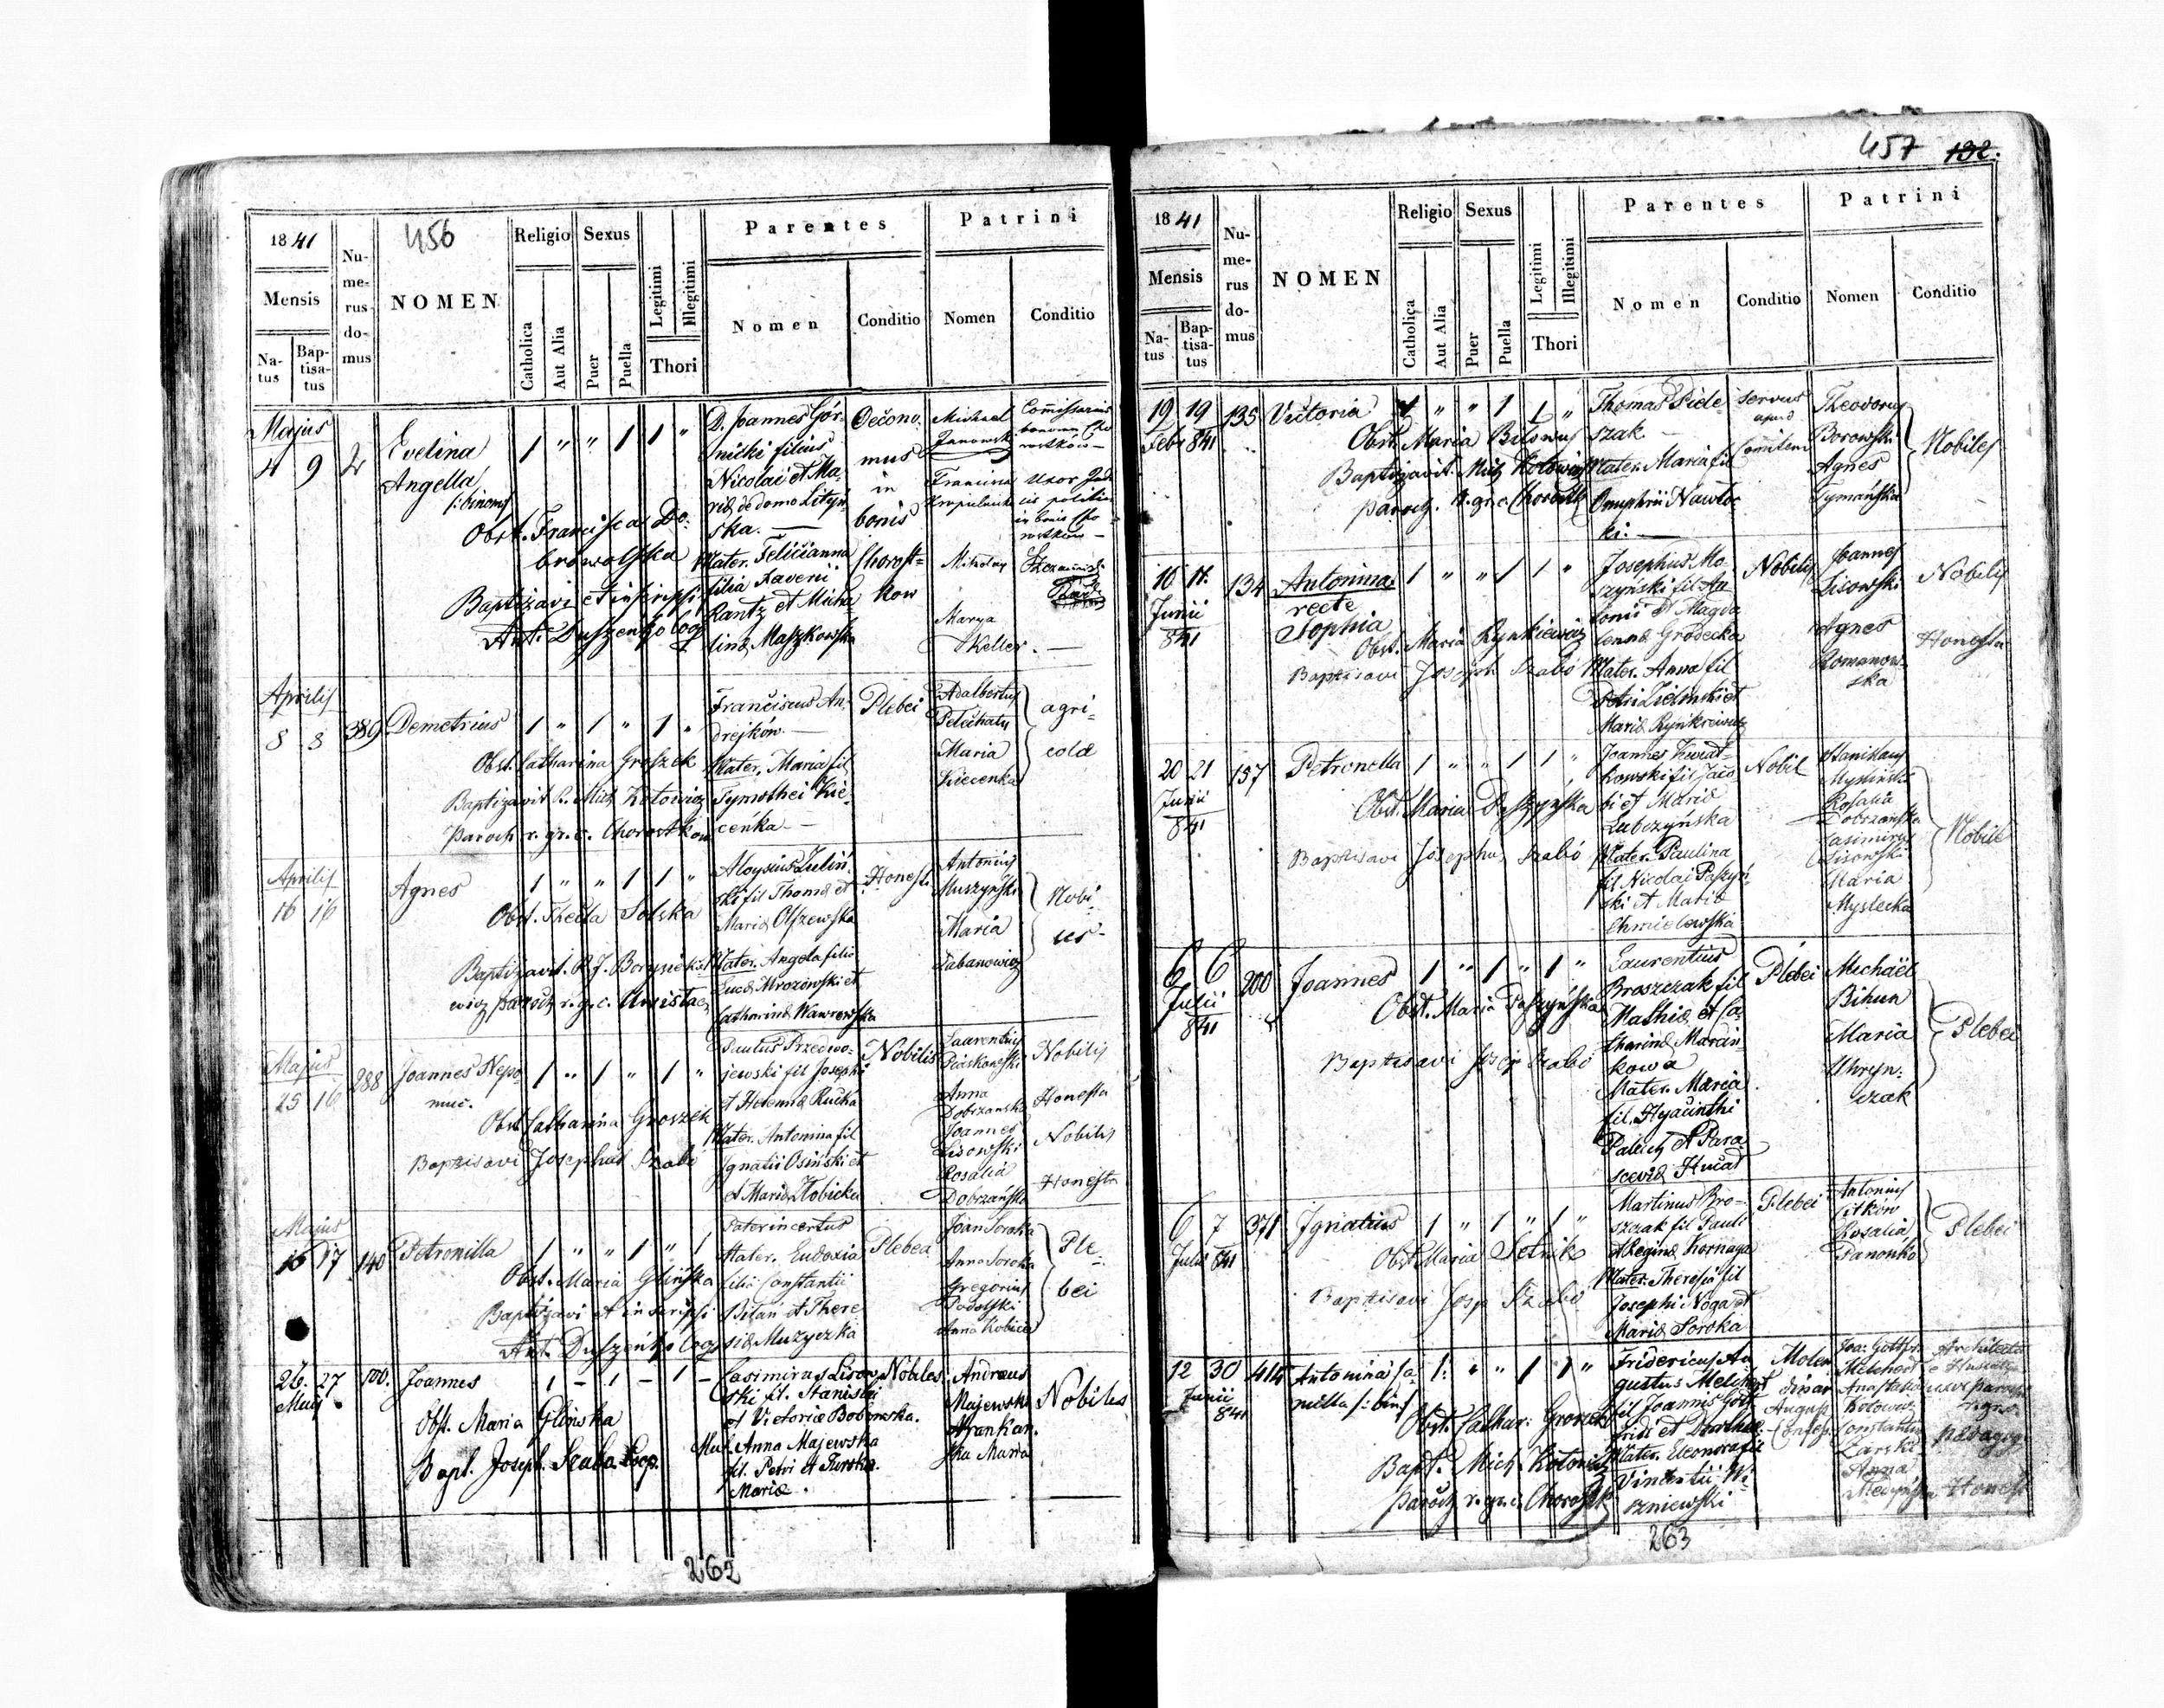 456
1841
Mensis
Na-
tus
Bap-
tisa-
tus
Nu-
me-
rus
do-
mus
NOMEN
Religio
Catholica
Aut Alia
Sexus
Puer
Puella
Legitimi
Illegitimi
Thori
Parentes
Nomen
Conditio
Patrini
Nomen
Conditio
Majus
4 9 2
Evelina
Angella
/:binom/
1 " " 1 1 "
Obst. Francisca Do-
browolska
Baptizavi et inscripsi
Ant. Duszeńko Coop
D. Joannes Gór-
nicki filius
Nicolai et Ma-
riæ de domo Lityń
ska. —
Mater. Felicianna
filia Xaverii
Rantz et Micha
linæ Maszkowska
Oecono-
mus
in
bonis
Chorost-
kow
Michael
Janowski
Francisca
Mikołay
Marya
Keller. —
Commissarius
bonorum Cho
rostków —
Uxor Jud
cis politici
in bonis Cho
rostkow —
Aprilis
8 8 389 Demetrius 1 " 1 " 1 "
Obst. Catharina Groszek
Baptizavit R. Mich Kotowicz
Paroch r. gr. c. Chorostkow
Franciscus An-
drejków. —
Mater. Maria fil
Tymothei Kie-
ceńka —
Plebei
Adalbertus
Pelechaty
Maria
Kiecenka
agri-
colæ
Aprilis
16 16 Agnes 1 " " 1 1 "
Obst. Thecla Solska
Baptizavit. R. J. Borysieke-
wicz paroch r. g. c. Uwisłae
Aloysius Zuliń-
ski fil Thomæ et
Mariæ Olszewska
Mater. Angela filia
Lucæ Mrozowski et
Catharinæ Wawrowska
Honest.
Antonius
Muszyński
Maria
Łabanowicz
Nobi-
les-
Majus
25 16 288 Joannes Nepo-
muc.
1 " 1 " 1 "
Obst. Catharina Groszek
Baptisavi Josephus Szabó
Paulus Przedwo-
jewski fil Josephi
et Helennæ Rucka
Mater. Antonina fil
Ignatii Osiński et
et Mariæ Kobicka
Nobilis
Laurentius
Piaskowski
Anna
Dobrzanska
Joannes
Lisowski
Rosalia
Dobrzańska
Nobilis
Honesta
Nobilis
Honesta
Majus
16 17 140 Petronilla 1 " " 1 " 1
Obst. Maria Glińska
Baptizavi et inscripsi
Ant. Duszeńko Coop
Pater incertus
Mater. Eudoxia
filia Constantii
Bilań et There
siæ Muzyczka
Plebea
Joan Soroka
Anna Soroka
Gregorius
Podolski
Anna Kobica
Ple-
bei
26. 27 100. Joannes 1 - 1 - 1 -
Maij
Obst. Maria Glinska
Bapt. Joseph. Szabo Coop.
Casimirus Lisow
ski fil. Stanislai
et Victoriæ Bobowska.
Mat. Anna Majewska
fil. Petri et Turska.
Mariæ.
Nobiles.
Andreas
Majewski
Maria
Nobiles
262
457 132.
1841
Mensis
Na-
tus
Bap-
tisa-
tus
Nu-
me-
rus
do-
mus
NOMEN
Religio
Catholica
Aut Alia
Sexus
Puer
Puella
Legitimi
Illegitimi
Thori
Parentes
Nomen
Conditio
Patrini
Nomen
Conditio
19 19 135 Victoria 1 " " 1 1 "
Febr 841
Obst. Maria Bilowus
Baptizavit. Mich Kotowicz
paroch. r. gr. c Chorostk
Thomas Piele-
szak —
Mater. Maria fil
Onuphrii Nawroc
ki. —
servus
apud
Comitem
Theodorus
Borowski
Agnes
Tymańska
Nobiles
16 18. 134 Antonina 1 " " 1 1 "
Junii
841
recte
Sophia
Obst. Maria Rynkiewicz
Baptisavi Joseph Szabó
Josephus Mo-
szyński fil An
tonii et Magda
lennæ Grodecka
Mater. Anna fil
Petri Zielinski et
Mariæ Rynkiewicz
Nobilis
Joannes
Lisowski
Agnes
Romanow-
ska
Nobilis
Honesta
20 21 157 Petronella 1 " " 1 1 "
Junii
841
Obst. Maria Daszyńska
Baptisavi Josephus Szabó
Joannes Kwiat-
kowski fil Jaco
bi et Mariæ
Lubczyńska
Mater. Paulina
fil Nicolai Paszyń-
ski et Mariæ
Chmielewska
Nobil
Stanislaus
Mysliński
Rosalia
Dobrzańska
Casimirus
Lisowski
Maria
Myslecka
Nobil
6 6 200 Joannes 1 " 1 " 1 "
Julii
841
Obst. Maria Paszyńska
Baptisavi Josep Szabó
Laurentius
Broszczak fil
Mathiæ et Ca-
tharinæ Marcin-
kowa
Mater. Maria
fil. Hyacinthi
Palich et Para
sceviæ Hucał
Plebei
Michäel
Bihun
Maria
Uhryn-
czak
Plebei
6 7 371 Ignatius 1 " 1 " 1 "
Julii 841
Obst Maria Setnik
Baptisavi Josp Szabó
Martinus Bro-
szczak fil Pauli
et Reginæ Kornaga
Mater. Theresia fil
Josephi Noga et
Mariæ Soroka
Plebei
Antonius
Fitków
Rosalia
Panonko
Plebei
12 30 414 Antonina Ca-
Junii
841
milla /:bin:/
1 " " 1 1 "
Obst. Cathar: Groszek
Bapt. Mich. Kotowicz
Paroch r. gr. c. Chorostk
Fridericus Au
gustus Melchert
fil Joannis Gott
fridi et Dorotheæ
Mater. Eleonora fil
Vincentii Wi-
szniewski
Molen-
dinar
August
Confes.
Joa: Gottfr.
Melchert
Anastasia
Kotowicz
Constantin
Zarski
Anna
Architecta
e Husiatyn
uxor paroch
r. gr. c.
Pædagog
Honest
263